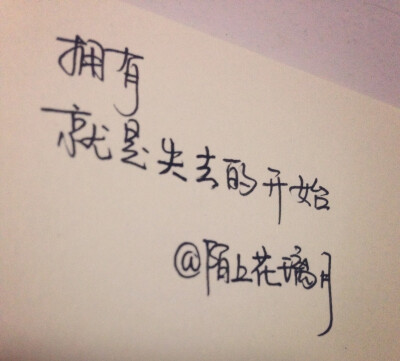 拥有
就是失去的开始
@陌上花璃月